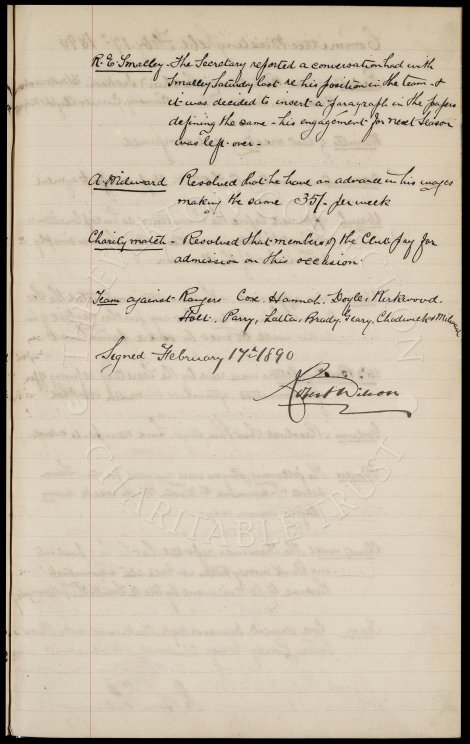 R. E Smalley - The Secretary reported a conversation had with
Smalley Saturday last re his position in the team - &
it was decided to insert a paragraph in the papers
defining the same - his engagement for next season
was left over -
A. Milward Resolved that he have an advance in his wages
making the same 35/- per week
Charity match - Resolved that members of the Club pay for
admission on this occasion.
Team against Rangers Cox, Hannah, Doyle, Kirkwood,
Holt, Parry, Latta, Brady, Geary, Chadwick & Milward
Signed February 17th 1890
CHARITABLE TRUST